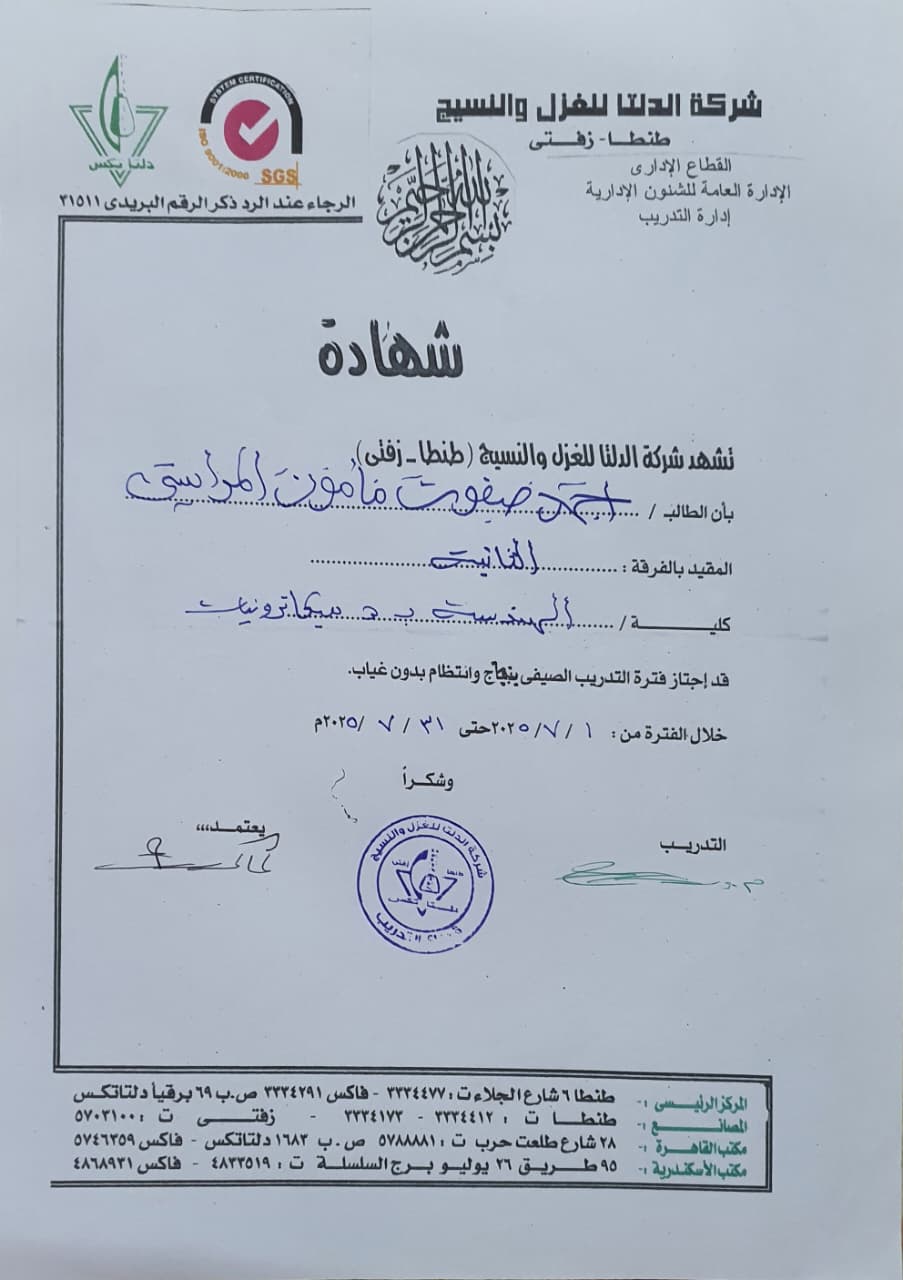 شركة الدلتا للغزل والنسيج
طنطا - زفتى
القطاع الإدارى
الإدارة العامة للشئون الإدارية
إدارة التدريب
بسم الله الرحمن الرحيم
SYSTEM CERTIFICATION
ISO 9001:2000
SGS
دلتا تكس
الرجاء عند الرد ذكر الرقم البريدى ٣١٥١١
شهادة
تشهد شركة الدلتا للغزل والنسيج (طنطا - زفتى)
بأن الطالب / احمد صفوت مأمون المراسى
المقيد بالفرقة : الثانية
كليـــــة / الهندسة ميكاترونيات
قد إجتاز فترة التدريب الصيفى بنجاح وانتظام بدون غياب.
خلال الفترة من : ١ / ٧ / ٢٠٢٥ حتى ٣١ / ٧ / ٢٠٢٥م
وشكراً
التدريب
يعتمد،،،
شركة الدلتا للغزل والنسيج
التدريب
المركز الرئيسى :- طنطا ٦ شارع الجلاء ت : ٣٣٣٤٤٧٧ - فاكس ٣٣٣٤٢٩١ ص.ب ٦٩ برقيا دلتاتكس
المصانع :- طنطا ت : ٣٣٣٤٤١٢ - ٣٣٣٤١٧٣ - زفتى ت : ٥٧٠٣١٠٠
مكتب القاهرة :- ٢٨ شارع طلعت حرب ت : ٥٧٨٨٨٨١ ص.ب ١٦٨٣ دلتاتكس - فاكس ٥٧٤٦٣٥٩
مكتب الأسكندرية :- ٩٥ طريق ٢٦ يوليو برج السلسلة ت : ٤٨٣٣٥١٩ - فاكس ٤٨٦٨٩٣١